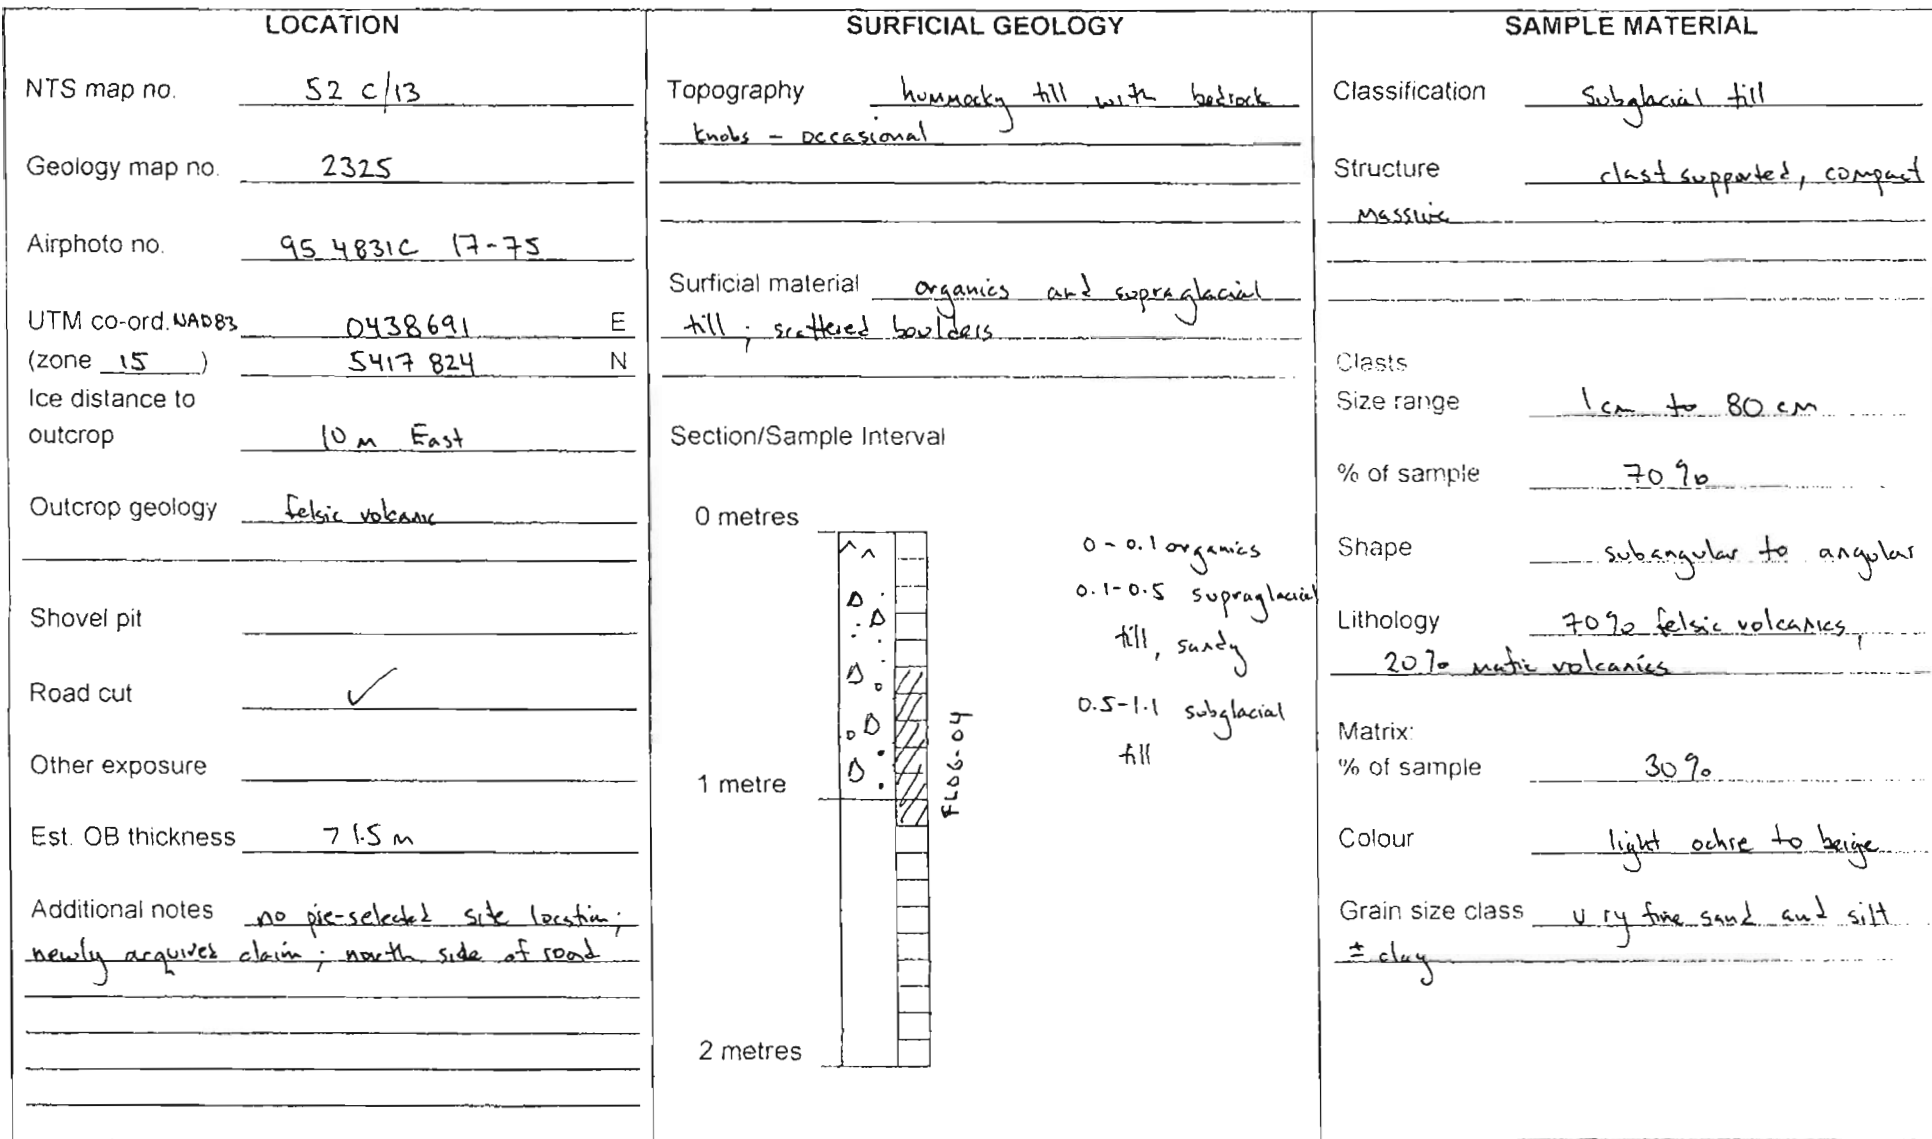 LOCATION
NTS map no. 52 C/13
Geology map no. 2325
Airphoto no. 95 4831C 17-75
UTM co-ord. NAD83 0438691 E
(zone 15 ) 5417 824 N
Ice distance to
outcrop 10 m East
Outcrop geology felsic volcanic
Shovel pit
Road cut ✓
Other exposure
Est. OB thickness > 1.5 m
Additional notes no pre-selected site location;
newly acquired claim; north side of road
SURFICIAL GEOLOGY
Topography hummocky till with bedrock
knobs - occasional
Surficial material organics and supraglacial
till; scattered boulders
Section/Sample Interval
0 metres
0 - 0.1 organics
0.1-0.5 supraglacial
till, sandy
0.5-1.1 subglacial
till
FL06-04
1 metre
2 metres
SAMPLE MATERIAL
Classification Subglacial till
Structure clast supported, compact
massive
Clasts
Size range 1 cm to 80 cm
% of sample 70%
Shape subangular to angular
Lithology 70% felsic volcanics,
20% mafic volcanics
Matrix:
% of sample 30%
Colour light ochre to beige
Grain size class v ry fine sand and silt
± clay